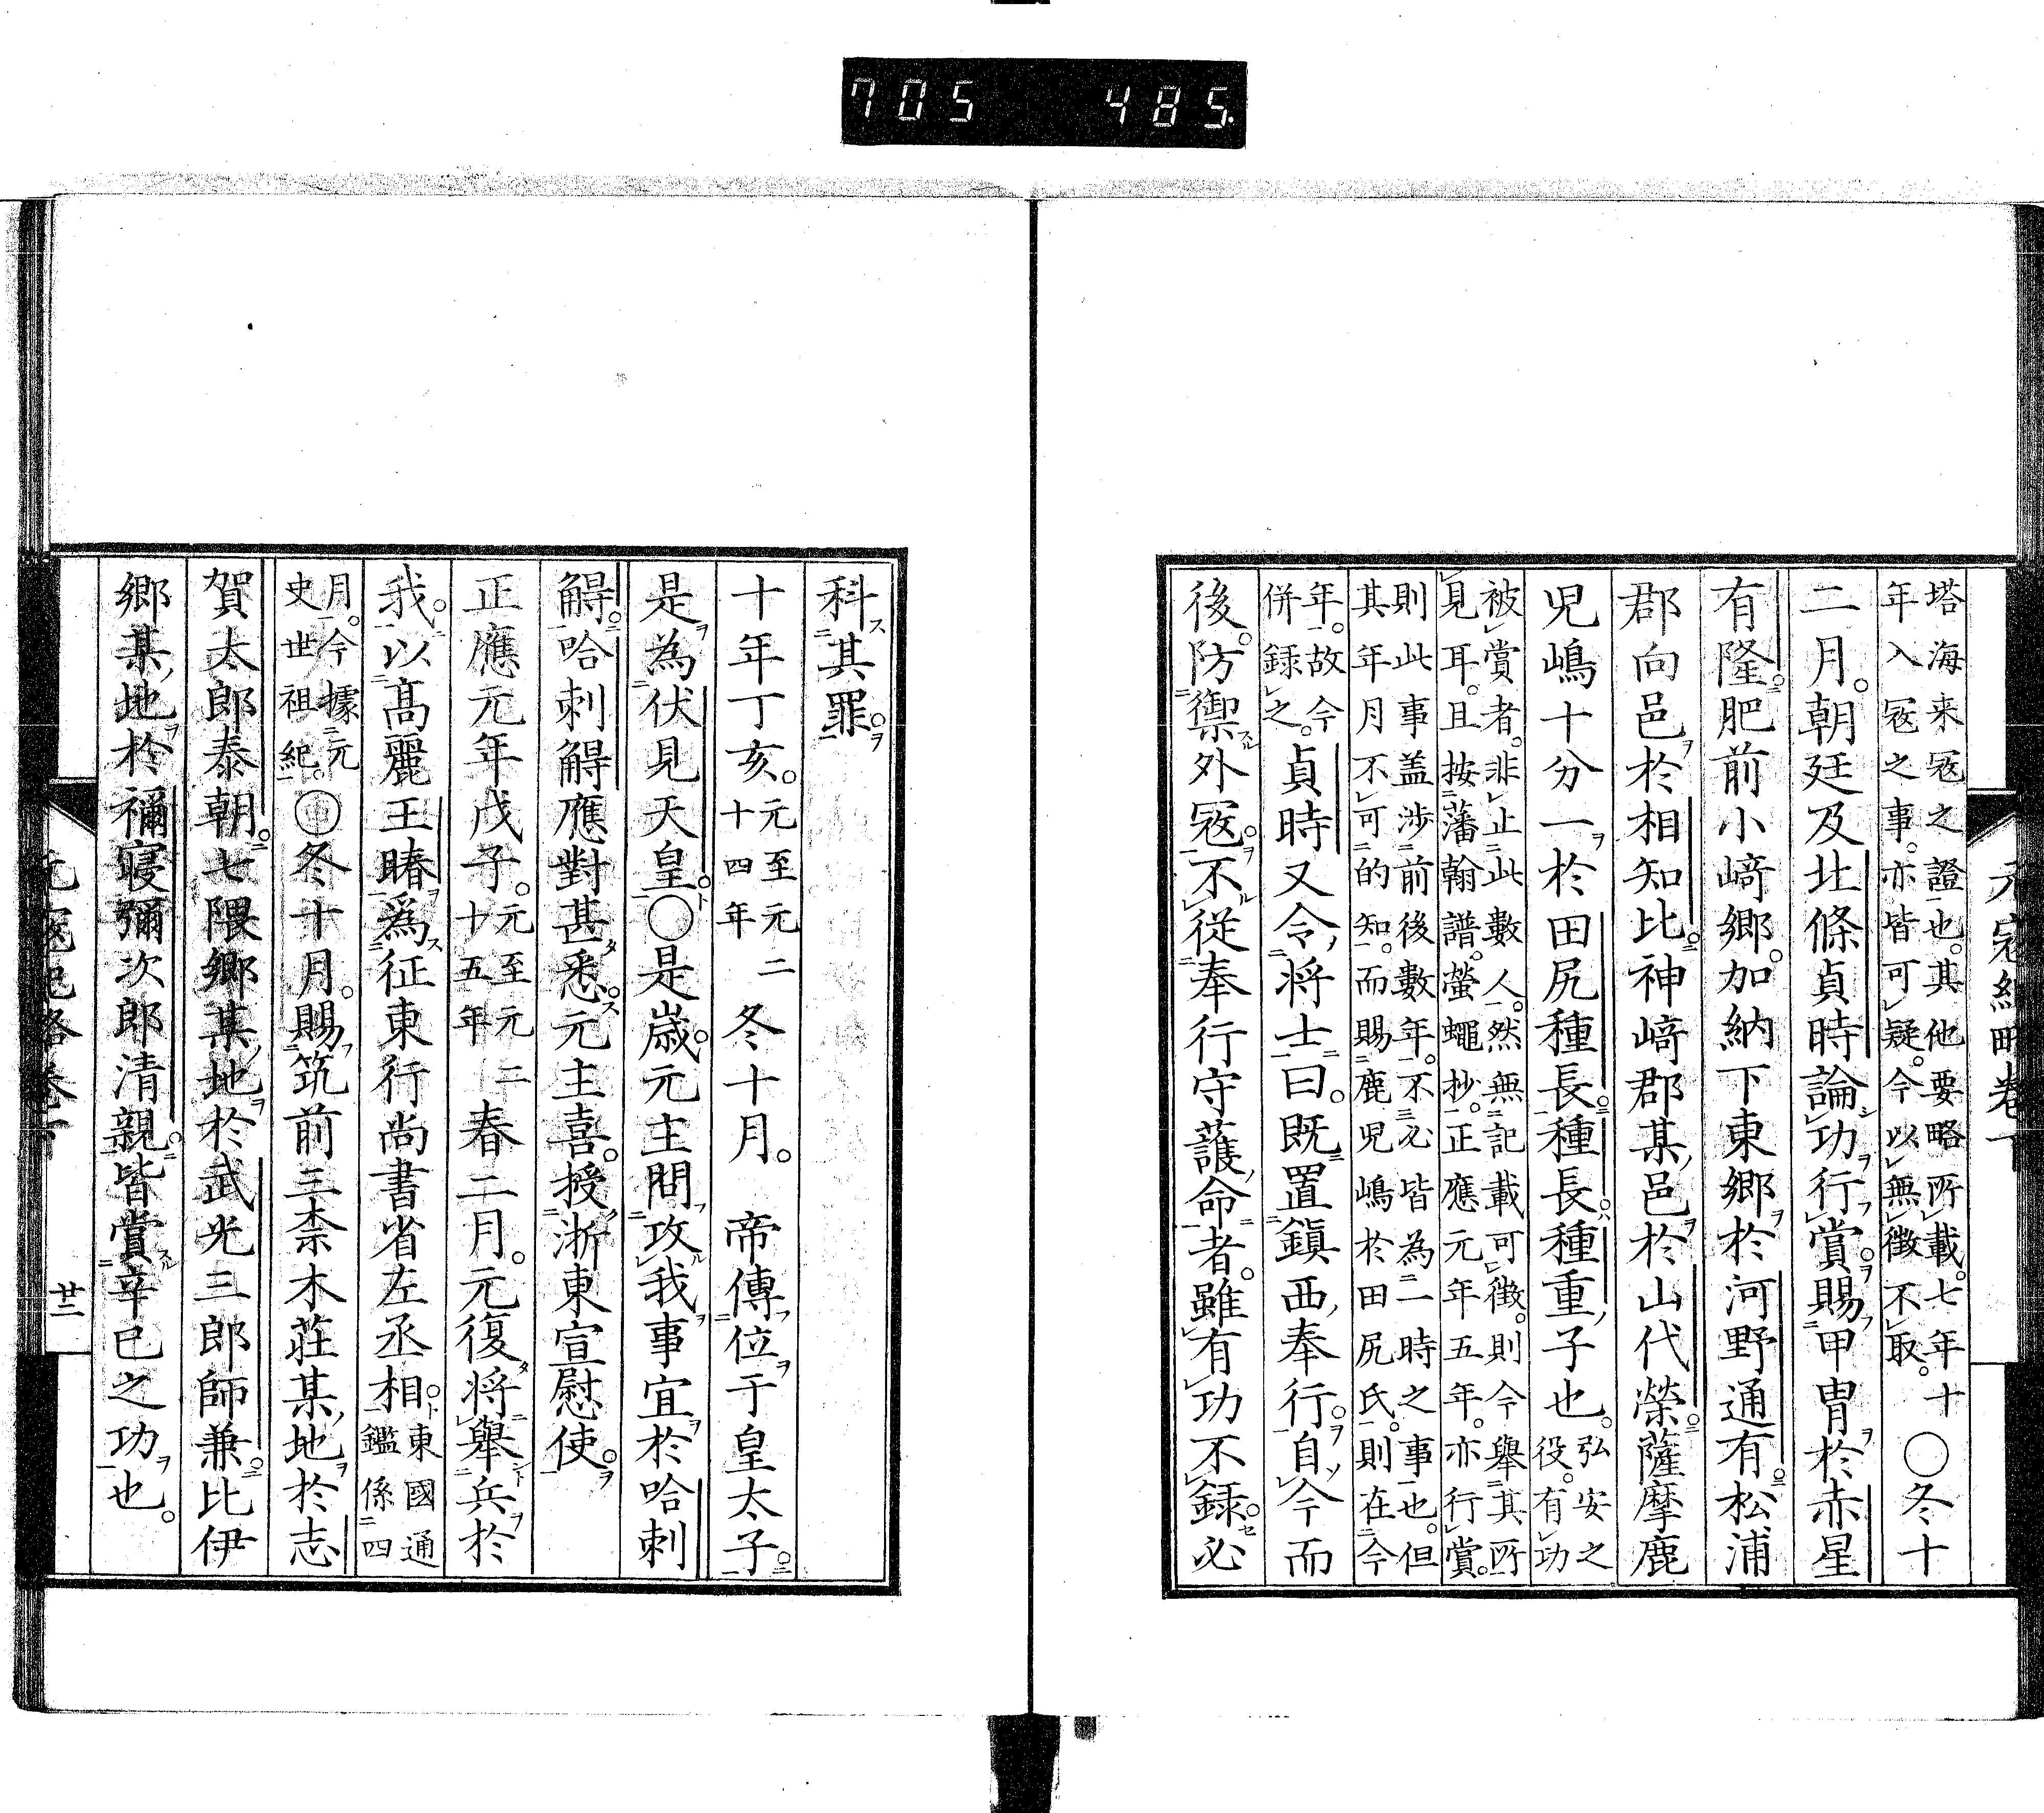 705 485.
元寇紀略卷下
塔海来寇之證也。其他要略所載。七年十
年入寇之事。亦皆可疑。今以無徴不取。
〇冬十
二月。朝廷及北條貞時論功行賞。賜甲冑於赤星
有隆。肥前小﨑郷。加納下東郷於河野通有。松浦
郡向邑於相知比。神﨑郡某邑於山代榮。薩摩鹿
児嶋十分一於田尻種長。種長種重子也。
弘安之
役。有功
被賞者。非止此數人。然無記載可徴。則今舉其所
見耳。且按藩翰譜。螢蠅抄。正應元年五年。亦行賞。
則此事盖涉前後數年。不必皆為二時之事也。但
其年月不可的知。而賜鹿児嶋於田尻氏。則在今
年。故今
併録之。
貞時又令將士曰。既置鎭西奉行。自今而
後。防禦外寇。不從奉行守護命者。雖有功不録。必
科其罪。
十年丁亥。
元至元二
十四年
冬十月。 帝傳位于皇太子。
是為伏見天皇〇是歳。元主問攻我事宜於哈刺
䚟。哈刺䚟應對甚悉。元主喜。授浙東宣慰使。
正應元年戊子。
元至元二
十五年
春二月。元復將舉兵於
我。以高麗王賰爲征東行尚書省左丞相
東國通
鑑係四
月。今據元
史世祖紀。
〇冬十月。賜筑前三柰木莊某地於志
賀太郎泰朝。七隈郷某地於武光三郎師兼。比伊
郷某地於禰寝彌次郎清親。皆賞辛巳之功也。
元寇紀略卷下
廿二